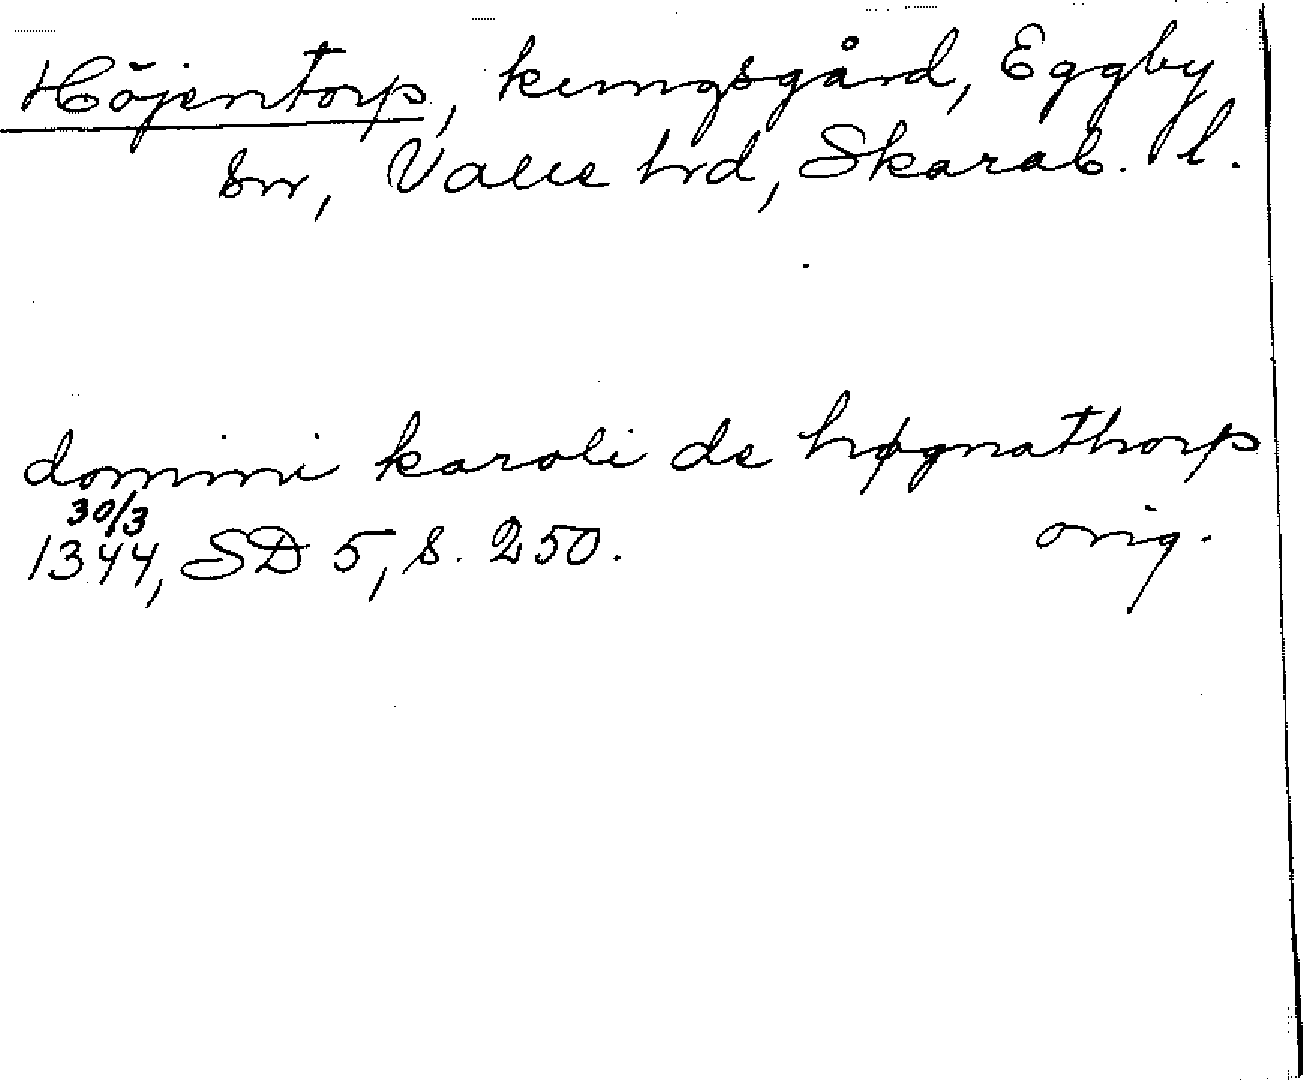 Höjentorp, kungsgård, Eggby
sn, Valle hrd, Skarab. l.
domini karoli de høgnathorp
30/3
1344, SD 5, s. 250. orig.